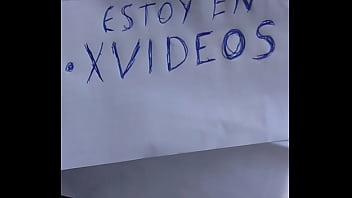 ESTOY EN
• XVIDEOS